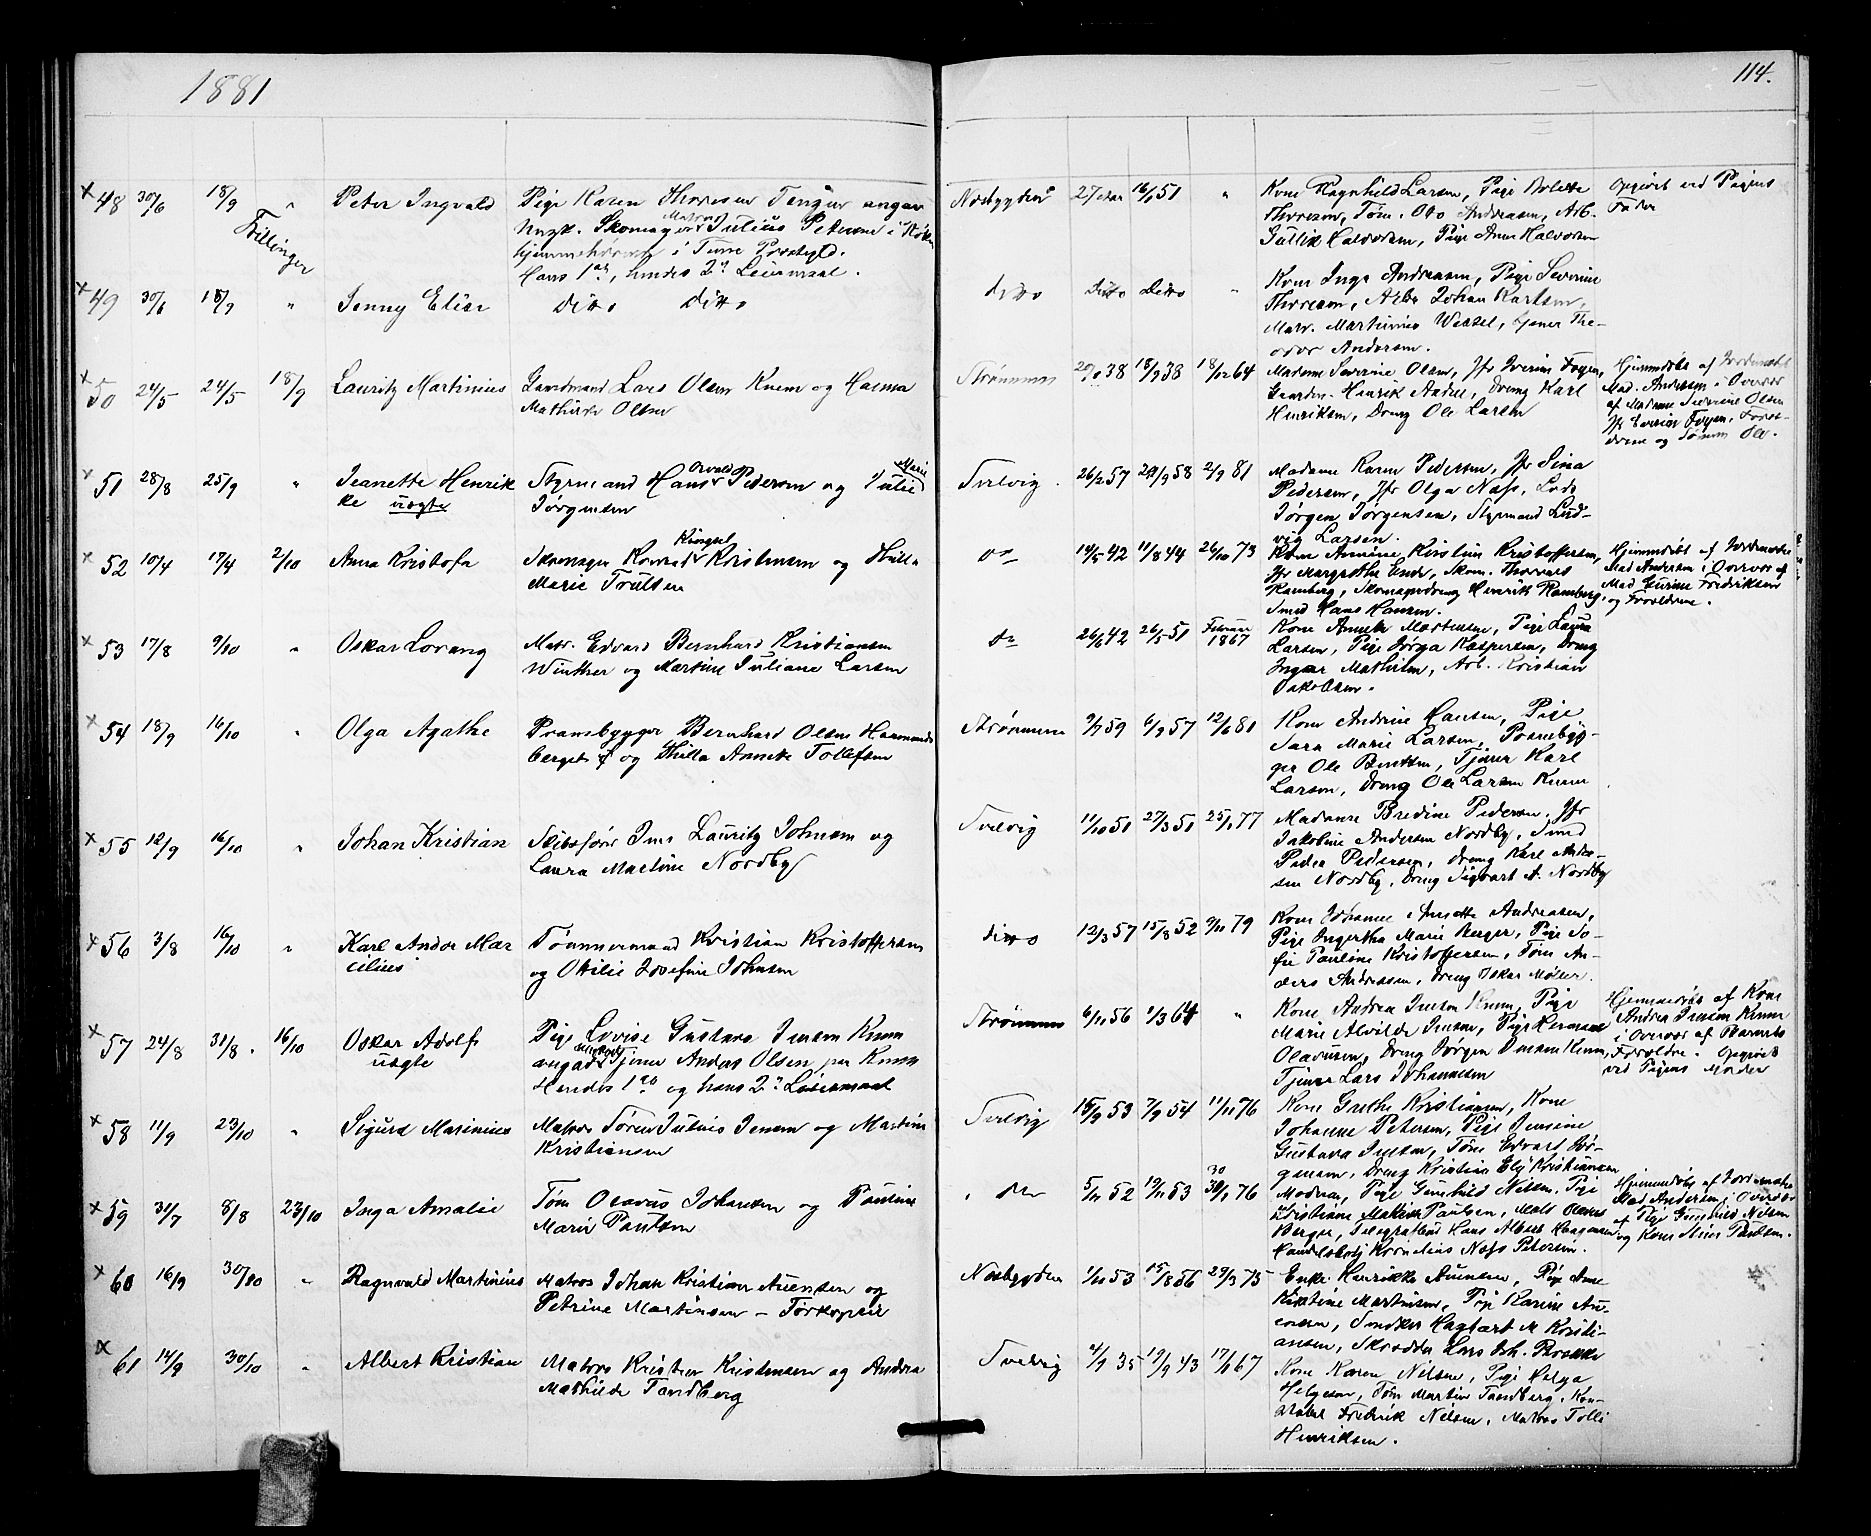 1881
114.
× 48 30/6 18/9 " Peter Ingvald Pige Karen Thoresen angav
Ungk. Skomager Matros Julius Petersen i
hjemmehørende i
Hans 1ste, hendes 2det Leiermaal.
Tvillinger
Kone Ragnhild Larsen, Pige
Thoresen, Tøm. Andreasen, Arb.
Gullik Halvorsen, Pige Anne Halvorsen
Opgivet ved Pigens
Fader
× 49 30/6 18/9 " Jenny Elise Ditto Ditto
ditto Ditto Ditto "
Kone Inga Andreasen, Pige Severine
Thoresen, Arb. Johan Karlsen,
Matr. Martinius Tjener The-
odor Andersen.
× 50 24/5 24/5 18/9 Lauritz Martinius Gaardmand Lars Olsen Knem og
Mathisen Olsen
Strømmen 38 18/9 38 18/12 64
Madame Severine Olsen, Jfr
Gaardm. Henrik Dreng Karl
Henriksen, Dreng Ole Larsen
Hjemmedøbt af Jordemoder
Mad. Andersen i Overvær
af Madame Severine Olsen
Jfr
og
× 51 28/8 25/9 " Jeanette Henrik
ke uægte
Styrmand Hans Osvald Pedersen og Julie Marie
Jørgensen
Svelvig 26/2 57 58 2/9 81
Madame Karen Pedersen, Jfr Lina
Pedersen, Jfr Olga Næss, Lods
Jørgen Jørgensen, Styrmand Lud-
vig Larsen.
× 52 10/4 17/4 2/10 Anna Kristofa Skomager Konrad Kristensen og Hulda
Marie Trulsen
do 14/5 42 11/8 44 26/10 73
Kone Annine Kirstine Kristoffersen,
Jfr Margrethe Skom. Thorvald
Ramberg, Skomagerdreng Henrik Ramberg,
Smed Hans Hansen.
Hjemmedøbt af Jordemoder
Mad Andersen i Overvær af
Mad Gurine Fredriksen
og Forældrene.
× 53 17/8 9/10 " Oskar Lorang Matr. Edvard Bernhard Kristiansen
Winther og Martine Juliane Larsen
do 26/6 42 26/5 51 Februar
1867
Kone Annette Mortensen, Pige Laura
Larsen, Pige Jørga Kaspersen, Dreng
Ingvar Mathisen, Arb. Kristian
Jakobsen.
× 54 18/9 16/10 " Olga Agathe Pramebygger Bernhard Olsen Hammands
berget og Thilla Annette Tollefsen
Strømmen 9/7 59 6/9 57 12/6 81
Kone Andrine Hansen, Pige
Sara Marie Larsen, Pramebyg-
ger Ole Bentsen, Tjener Karl
Larsen, Dreng Ole Larsen Knem
× 55 12/9 16/10 " Johan Kristian Skibsfører Jens Lauritz Johnsen og
Laura Martine Nordby
Svelvig 11/10 51 27/3 51 25/1 77
Madame Bredine Pedersen, Jfr
Jakobine Andersen Nordby, Smed
Peder Pedersen, Dreng Karl Ander-
sen Nordby, Dreng Sigvart A. Nordby
× 56 3/8 16/10 " Karl Andor Mar
cilius
Tømmermand Kristian Kristoffersen
og Otilie Josefine Johnsen
ditto 12/3 57 15/8 52 9/11 79
Kone Johanne Annette Andreasen,
Pige Ingertha Marie Berger, Pige So-
fie Pauline Kristoffersen, Tøm An-
ders Andreasen, Dreng Oskar Møller.
× 57 24/8 31/8 . 16/10 Oskar Adolf
uægte
Pige Lovise Gustava Jensen Knem
angav Tjener Anders Olsen paa Knem
Hendes 1ste og hans 2det Leiermaal
Strømmen 6/11 56 1/3 64 "
Kone Andrea Jensen Knem, Pige
Marie Alvilde Jensen, Pige Hermane
Olavesen, Dreng Jørgen Jensen Knem,
Tjener Lars Johannesen
Hjemmedøbt af Kone
Andrea Jensen Knem
i Overvær af Barnets
Forældre. Opgivet
ved Pigens Moder
× 58 11/9 23/10 " Sigurd Marinius Matros Søren Julius Jensen og Martine
Kristiansen
Svelvig 15/2 53 7/9 54 11/11 76
Kone Grethe Kristiansen, Kone
Johanne Petersen, Pige Jensine
Gustava Jensen, Tøm Edvart Jør-
gensen, Dreng Kristian Kristiansen
× 59 31/7 8/8 23/10 Inga Amalie Tøm Olavus Johansen og Pauline
Marie Paulsen
52 53 76
Modren, Pige Gunhild Nilsen, Pige
Kristiane Mathilde Paulsen,
Berger, Telegrafbud Hans Albert
Handelsbetj Kornelius Næss Petersen.
Hjemmedøbt af Jordemoder
Mad Andersen, i Overvær
af Pige Gunhild Nilsen
og Kone Stine Paulsen.
× 60 16/9 30/10 " Ragnvald Martinius Matros Johan Kristian Auensen og
Petrine Martinsen –
1/11 53 15/8 56 29/3 75
Enke Henrikke Auensen, Pige Anne
Kirstine Martinsen, Pige Karine Au-
ensen, Snedker Hagbart M Kristi-
ansen, Skrædder Lars
× 61 14/9 30/10 " Albert Kristian Matros Kristen Kristensen og Andrea
Mathilde Tandberg
Svelvig 35 43 67
Kone Karen Nilsen, Pige Helga
Helgesen, Tøm Martin Tandberg, Kon-
stabel Fredrik Nilsen, Matros Tolli
Henriksen.